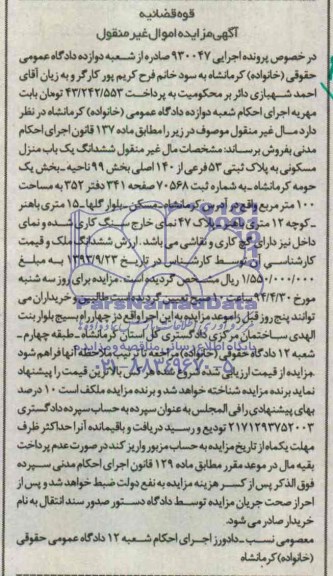 قوه قضائیه
آگهی مزایده اموال غیر منقول
در خصوص پرونده اجرایی ۹۳۰۰۴۷ صادره از شعبه دوازده دادگاه عمومی
حقوقی (خانواده) کرمانشاه به سود خانم فرح کریم پور کارگر و به زیان آقای
احمد شهبازی دائر بر محکومیت به پرداخت ۴۳/۲۴۲/۵۵۳ تومان بابت
مهریه اجرای احکام شعبه دوازده دادگاه عمومی (خانواده) کرمانشاه در نظر
دارد مال غیر منقول موصوف در زیر را مطابق ماده ۱۳۷ قانون اجرای احکام
مدنی بفروش برساند: مشخصات مال غیر منقول ششدانگ یک باب منزل
مسکونی به پلاک ثبتی ۵۳ فرعی از ۱۴۰ اصلی بخش ۹۹ ناحیه - بخش یک
حومه کرمانشاه - به شماره ثبت ۷۰۵۶۸ صفحه ۳۴۱ دفتر ۳۵۲ به مساحت
۱۰۰ متر مربع واقع در آدرس کرمانشاه - مسکن - بلوار گلها - ۱۵ متری باهنر
- کوچه ۱۲ متری باهنر پلاک ۴۷ نمای خارج سنگ کاری شده و نمای
داخل نیز دارای گچ کاری و نقاشی می باشد. ارزش ششدانگ ملک و قیمت
کارشناسی آن توسط کارشناس در تاریخ ۱۳۹۳/۹/۲۳ به مبلغ
۱/۵۵۰/۰۰۰/۰۰۰ ریال مشخص گردیده است. مزایده برای روز سه شنبه
مورخ ۹۴/۴/۳۰ ساعت ۱۰ صبح تعیین گردیده است طالبین و خریداران می
توانند پنج روز قبل از موعد مزایده به این اجرا واقع در چهارراه بسیج بلوار بنت
الهدی ساختمان مرکزی دادگستری کل استان کرمانشاه - طبقه چهارم -
شعبه ۱۲ دادگاه حقوقی (خانواده) مراجعه تا ترتیب ملاحظه آنها فراهم شود
.مزایده از قیمت ارزیابی شده شروع شده هر کس بالاترین قیمت را پیشنهاد
نماید برنده مزایده شناخته خواهد شد و برنده مزایده مکلف است ۱۰ درصد
بهای پیشنهادی را فی المجلس به عنوان سپرده به حساب سپرده دادگستری
۲۱۷۱۲۹۳۷۵۲۰۰۳ تودیع و رسید دریافت و باقیمانده آنرا حداکثر ظرف
مهلت یکماه از تاریخ مزایده به حساب مزبور واریز کند در صورت عدم پرداخت
بقیه مال در موعد مقرر مطابق ماده ۱۲۹ قانون اجرای احکام مدنی سپرده
فوق الذکر پس از کسر هزینه مزایده به نفع دولت ضبط خواهد شد و پس از
احراز صحت جریان مزایده توسط دادگاه دستور صدور سند انتقال به نام
خریدار صادر می شود.
معصومی نسب - دادورز اجرای احکام شعبه ۱۲ دادگاه عمومی حقوقی
(خانواده) کرمانشاه